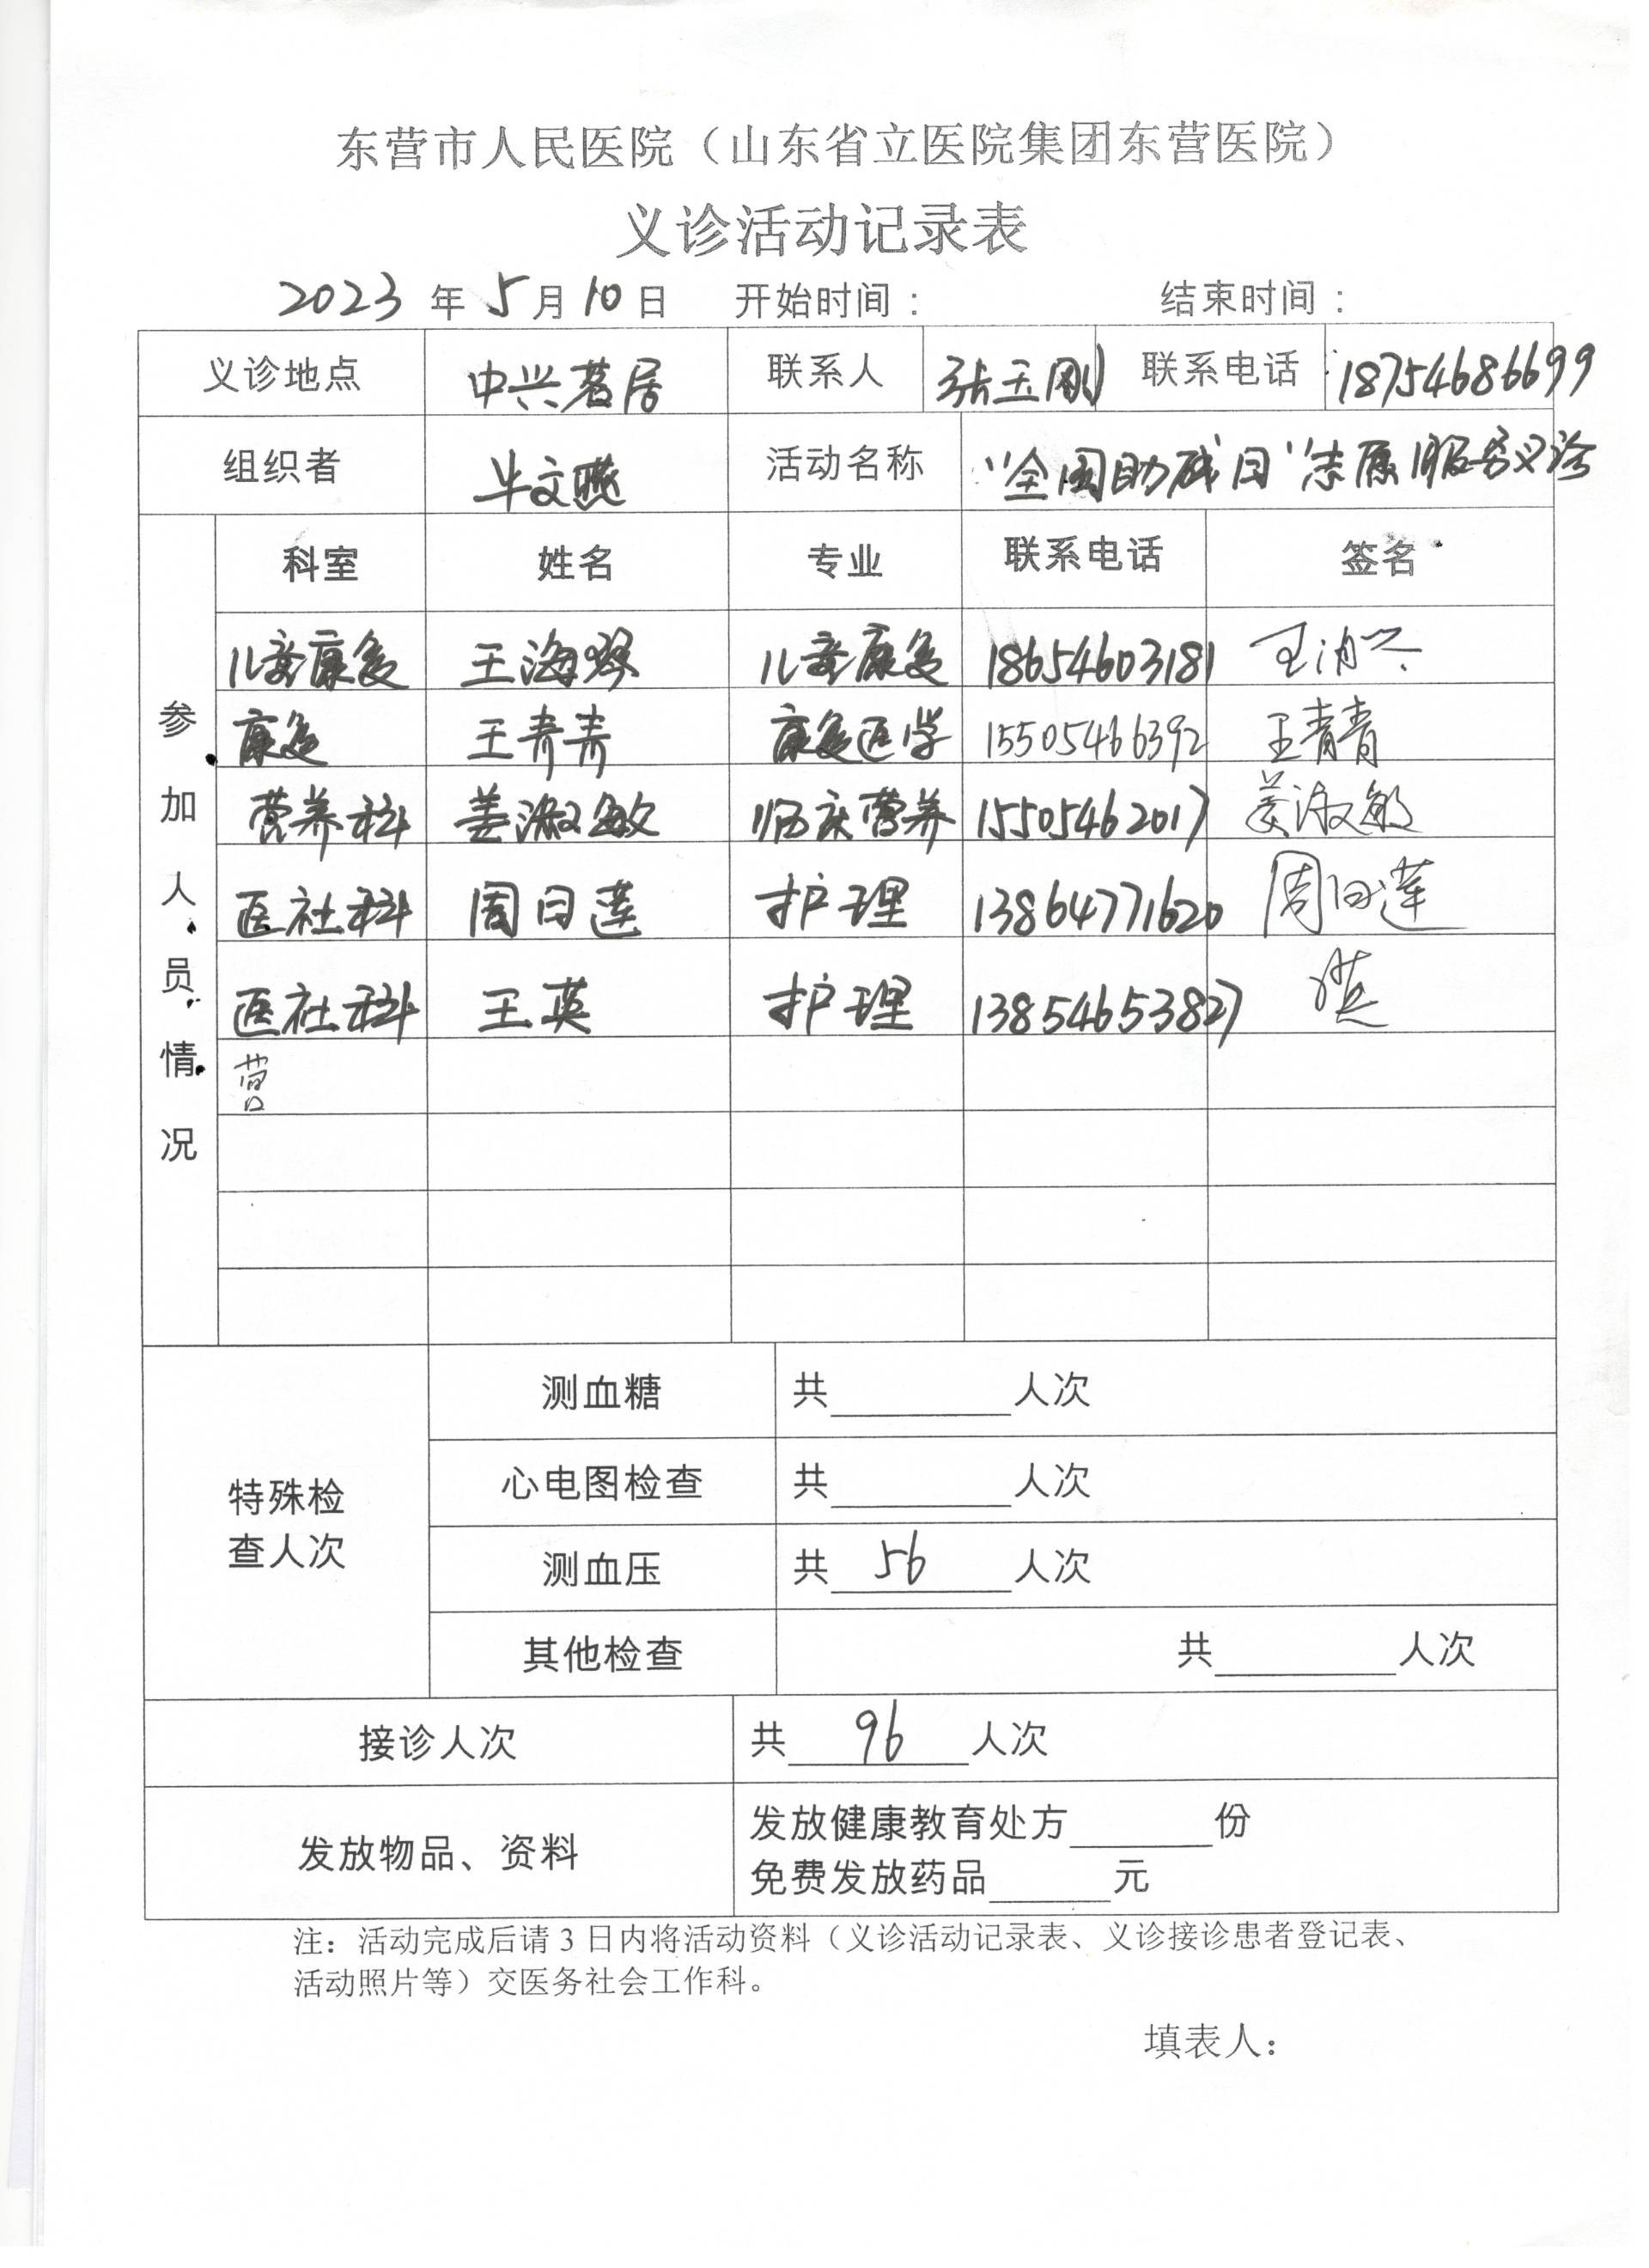 东营市人民医院（山东省立医院集团东营医院）
义诊活动记录表
2023 年 5 月 10 日 开始时间： 结束时间：
义诊地点 中兴茗居 联系人 张玉刚 联系电话 18754686699
组织者 牛文燕 活动名称 “全国助残日”志愿服务义诊
参加人员情况
科室 姓名 专业 联系电话 签名
儿童康复 王海 儿童康复 18654603181
康复 王青青 康复医学 15505466392 王青青
营养科 姜淑敏 临床营养 15505462017 姜淑敏
医社科 周曰莲 护理 13864771620 周曰莲
医社科 王英 护理 13854653827
营
特殊检
查人次
测血糖 共 人次
心电图检查 共 人次
测血压 共 56 人次
其他检查 共 人次
接诊人次 共 96 人次
发放物品、资料
发放健康教育处方 份
免费发放药品 元
注：活动完成后请 3 日内将活动资料（义诊活动记录表、义诊接诊患者登记表、
活动照片等）交医务社会工作科。
填表人：